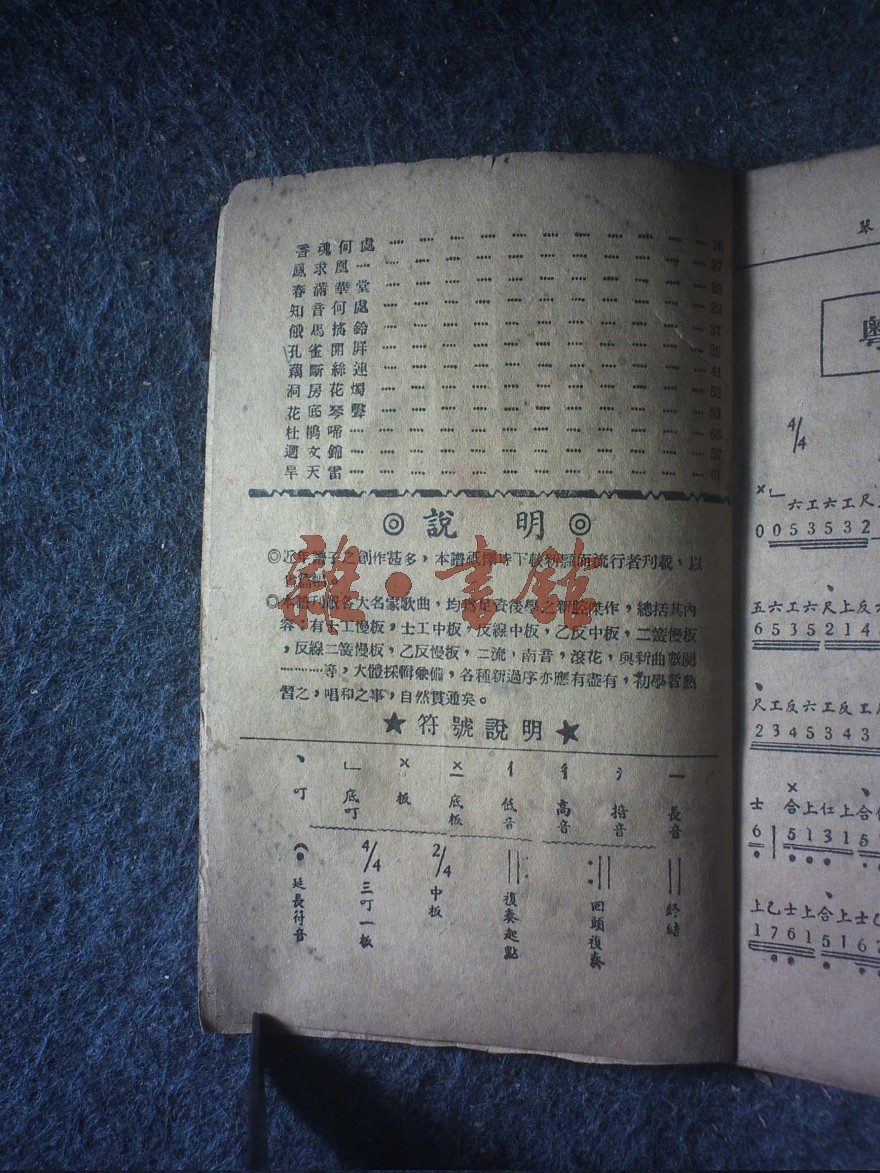 香魂何處 16
鳳求凰 27
春滿華堂 28
知音何處 29
餓馬搖鈴 37
孔雀開屏 39
藕斷絲連 41
洞房花燭 52
花底琴聲 53
杜鵑啼 55
迴文錦 57
旱天雷 61
◎說明◎
◎近年譜子之創作甚多,本譜祇擇時下較新穎而流行者刊載,以
◎本譜刊載各大名家歌曲,均為足資後學之新腔傑作,總括其內
容:有士工慢板,士工中板,反線中板,乙反中板,二簧慢板
,反線二簧慢板,乙反慢板,二流,南音,滾花,與新曲數闋
…………等,大體採輯彙備,各種新過序亦應有盡有,初學者熟
習之,唱和之事,自然貫通矣。
★符號說明★
丶 叮
∟ 底叮
× 板
× 底板
亻 低音
彳 高音
掯音
一 長音
延長符音
4/4 三叮一板
2/4 中板
復奏起點
回頭復奏
終結
雜·書館
琴
粵
4/4
六工六工尺
0 0 5 3 5 3 2
五六工六尺上反
6 5 3 5 2 1 4
尺工反六工反工
2 3 4 5 3 4 3
士 合上仜上合
6 5 1 3 1 5
上乙士上合上士
1 7 6 1 5 1 6